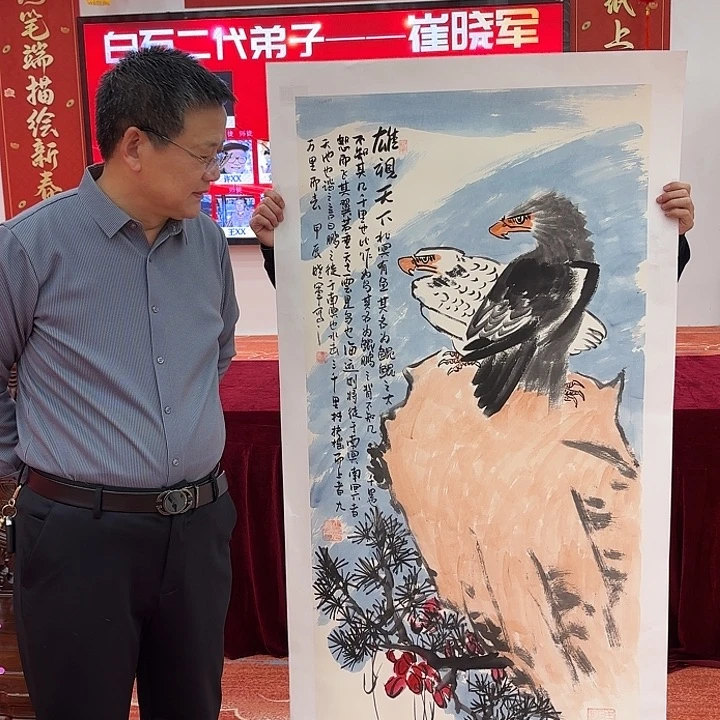 白石二代弟子——崔晓军
笔端描绘新春
纸上
王XX
雄视天下 北冥有鱼其名为鲲鲲之大
不知其几千里也化作为鸟其名为鹏鹏之背不知几千里
怒而飞其翼若垂天之云是鸟也海运则将徙于南冥南冥者
天池也谐之言曰鹏之徙于南冥也水击三千里抟扶摇而上者九
万里而去 甲辰 晓军写